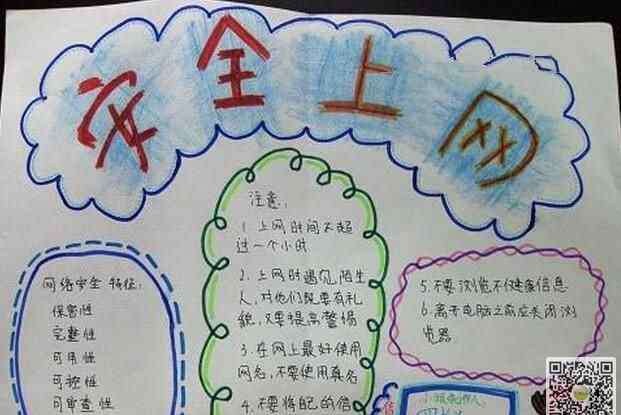 安全上网
网络安全 特征:
保密性
完整性
可用性
可控性
可审查性
注意:
1 上网时间不超
过一个小时
2. 上网时遇见陌生
人,对他们既要有礼
貌,又要提高警惕
3. 在网上最好使用
网名,不要使用真名
4. 不要将自己的信
5. 不要浏览不健康信息
6. 离开电脑之前应关闭浏
览器